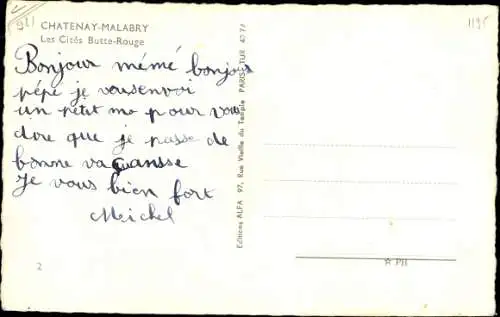 921
1195
CHATENAY-MALABRY
Les Cités Butte-Rouge
Bonjour mémé bonjour
pépé je vousenvoi
un petit mo pour vou
dire que je passe de
bonne vacansse
Je vous bien fort
Meichel
2
Editions ALFA 97, Rue Vieille du Temple PARIS-TUR 42 72
A PH